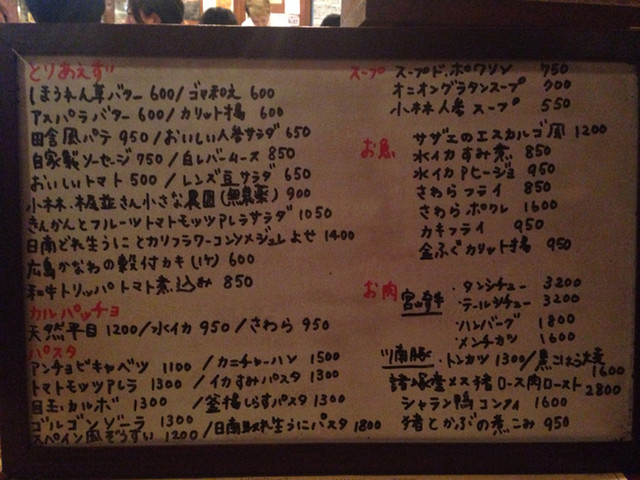 とりあえず
ほうれん草バター 600/ゴマ和え 600
アスパラバター 600/カリット揚 600
田舎風パテ 950/おいしい人参サラダ 650
自家製ソーセージ 750/白レバームース 850
おいしいトマト 500/レンズ豆サラダ 650
小林・梶並さん小さな農園(無農薬) 900
きんかんとフルーツトマトモッツアレラサラダ 1050
日南どれ生うにとカリフラワーコンソメジュレよせ 1400
広島かなわの殻付カキ(1ケ) 600
和牛トリッパトマト煮込み 850
カルパッチョ
天然平目 1200/水イカ 950/さわら 950
パスタ
アンチョビキャベツ 1100/カニチャーハン 1500
トマトモッツアレラ 1300/イカすみパスタ 1300
目玉・カルボ 1300/釜揚しらすパスタ 1300
ゴルゴンゾーラ 1300
スペイン風ぞうすい 1200/日南どれ生うにパスタ 1800
スープ スープド・ポワソン 750
オニオングラタンスープ 900
小林人参スープ 550
お魚 サザエのエスカルゴ風 1200
水イカすみ煮 850
水イカアヒージョ 950
さわらフライ 850
さわらポワレ 1600
カキフライ 950
金ふぐカリット揚 950
お肉 宮崎牛 ・タンシチュー 3200
・テールシチュー 3200
・ハンバーグ 1800
・メンチカツ 1600
川南豚 ・トンカツ 1300/黒こしょう大麦 1600
諸塚産メス猪ロース肉ロースト 2800
シャラン鴨コンフィ 1600
猪とかぶの煮こみ 950